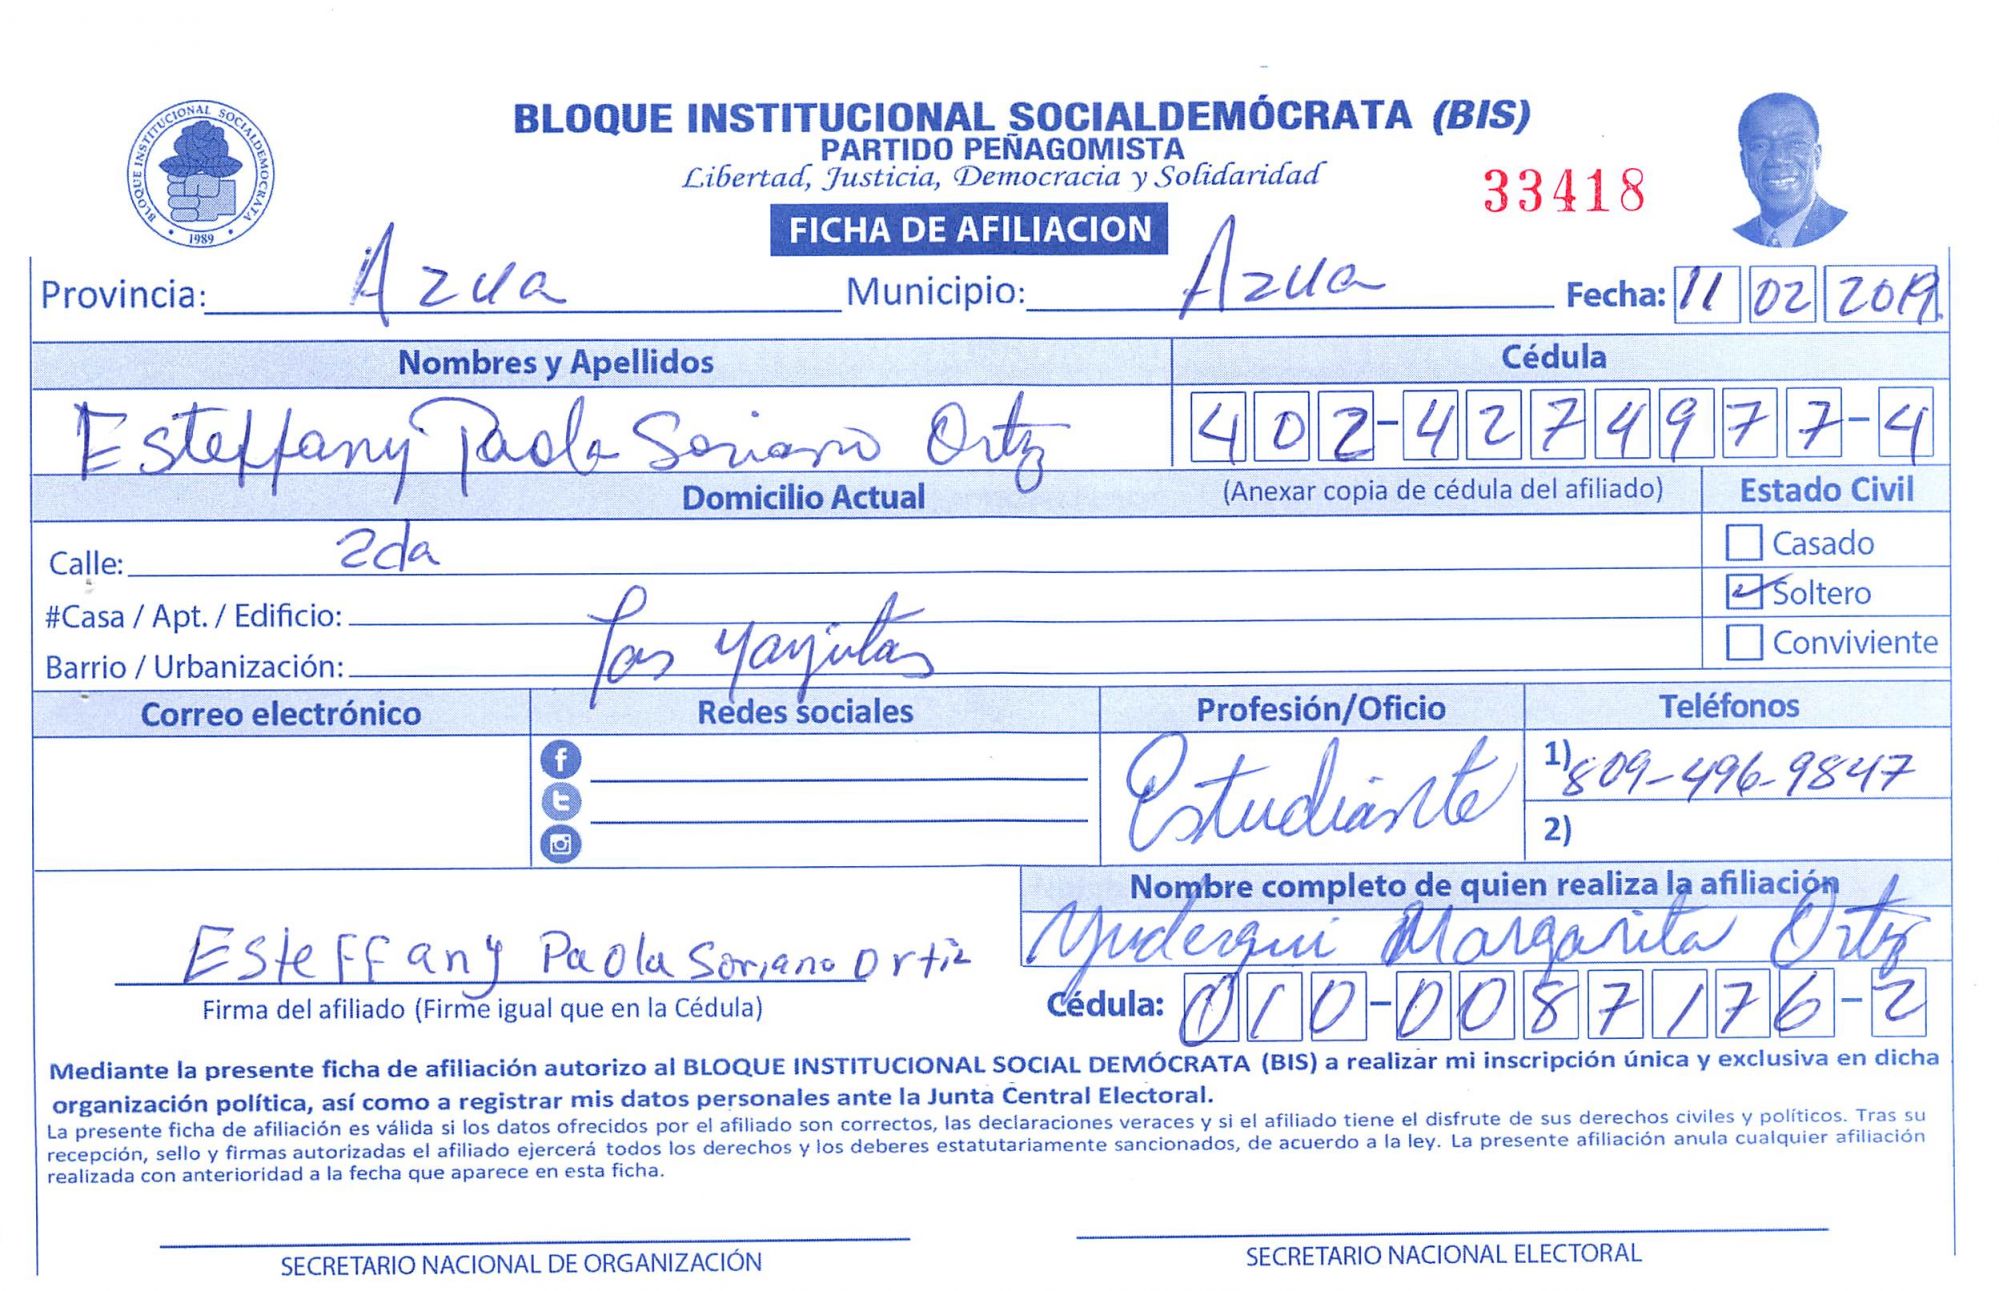 BLOQUE INSTITUCIONAL SOCIALDEMÓCRATA (BIS)
PARTIDO PEÑAGOMISTA
Libertad, Justicia, Democracia y Solidaridad
33418
BLOQUE INSTITUCIONAL SOCIALDEMOCRATA
1989
FICHA DE AFILIACION
Provincia: Azua Municipio: Azua Fecha: 11 02 2019
Nombres y Apellidos Cédula
Esteffany Paola Soriano Ortiz 402-4274977-4
Domicilio Actual (Anexar copia de cédula del afiliado) Estado Civil
Calle: 2da Casado
#Casa / Apt. / Edificio: Soltero
Barrio / Urbanización: Las Conviviente
Correo electrónico Redes sociales Profesión/Oficio Teléfonos
Estudiante 1) 809-496-9847
2)
Nombre completo de quien realiza la afiliación
Margarita Ortiz
Esteffany Paola Soriano Ortiz
Firma del afiliado (Firme igual que en la Cédula) Cédula: 010-0087176-2
Mediante la presente ficha de afiliación autorizo al BLOQUE INSTITUCIONAL SOCIAL DEMÓCRATA (BIS) a realizar mi inscripción única y exclusiva en dicha
organización política, así como a registrar mis datos personales ante la Junta Central Electoral.
La presente ficha de afiliación es válida si los datos ofrecidos por el afiliado son correctos, las declaraciones veraces y si el afiliado tiene el disfrute de sus derechos civiles y políticos. Tras su
recepción, sello y firmas autorizadas el afiliado ejercerá todos los derechos y los deberes estatutariamente sancionados, de acuerdo a la ley. La presente afiliación anula cualquier afiliación
realizada con anterioridad a la fecha que aparece en esta ficha.
SECRETARIO NACIONAL DE ORGANIZACIÓN SECRETARIO NACIONAL ELECTORAL